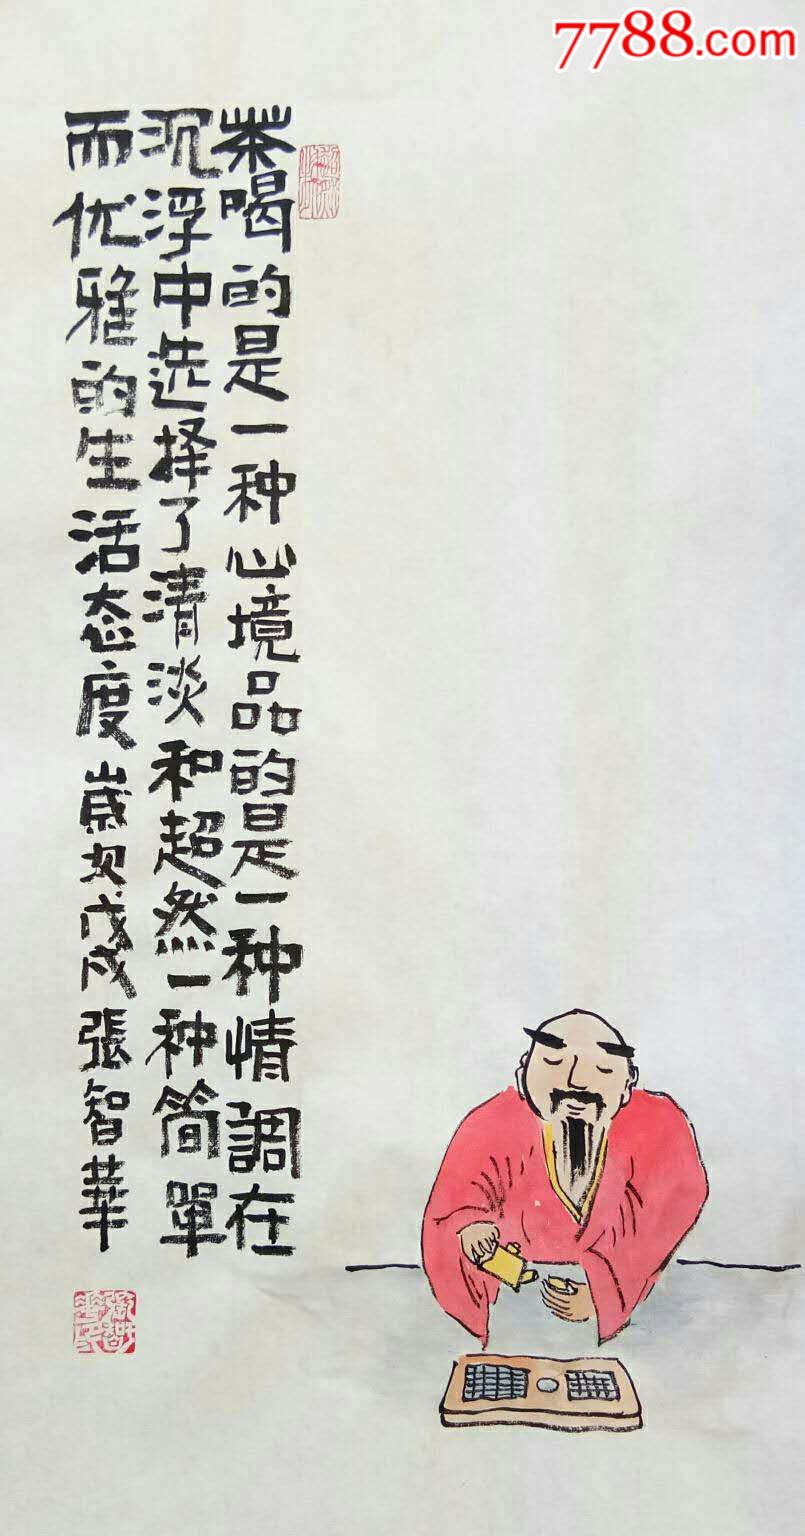 7788.com
茶喝的是一种心境品的是一种情調在
沉浮中选择了清淡和超然一种简單
而优雅的生活态度歲次戊戌張智華